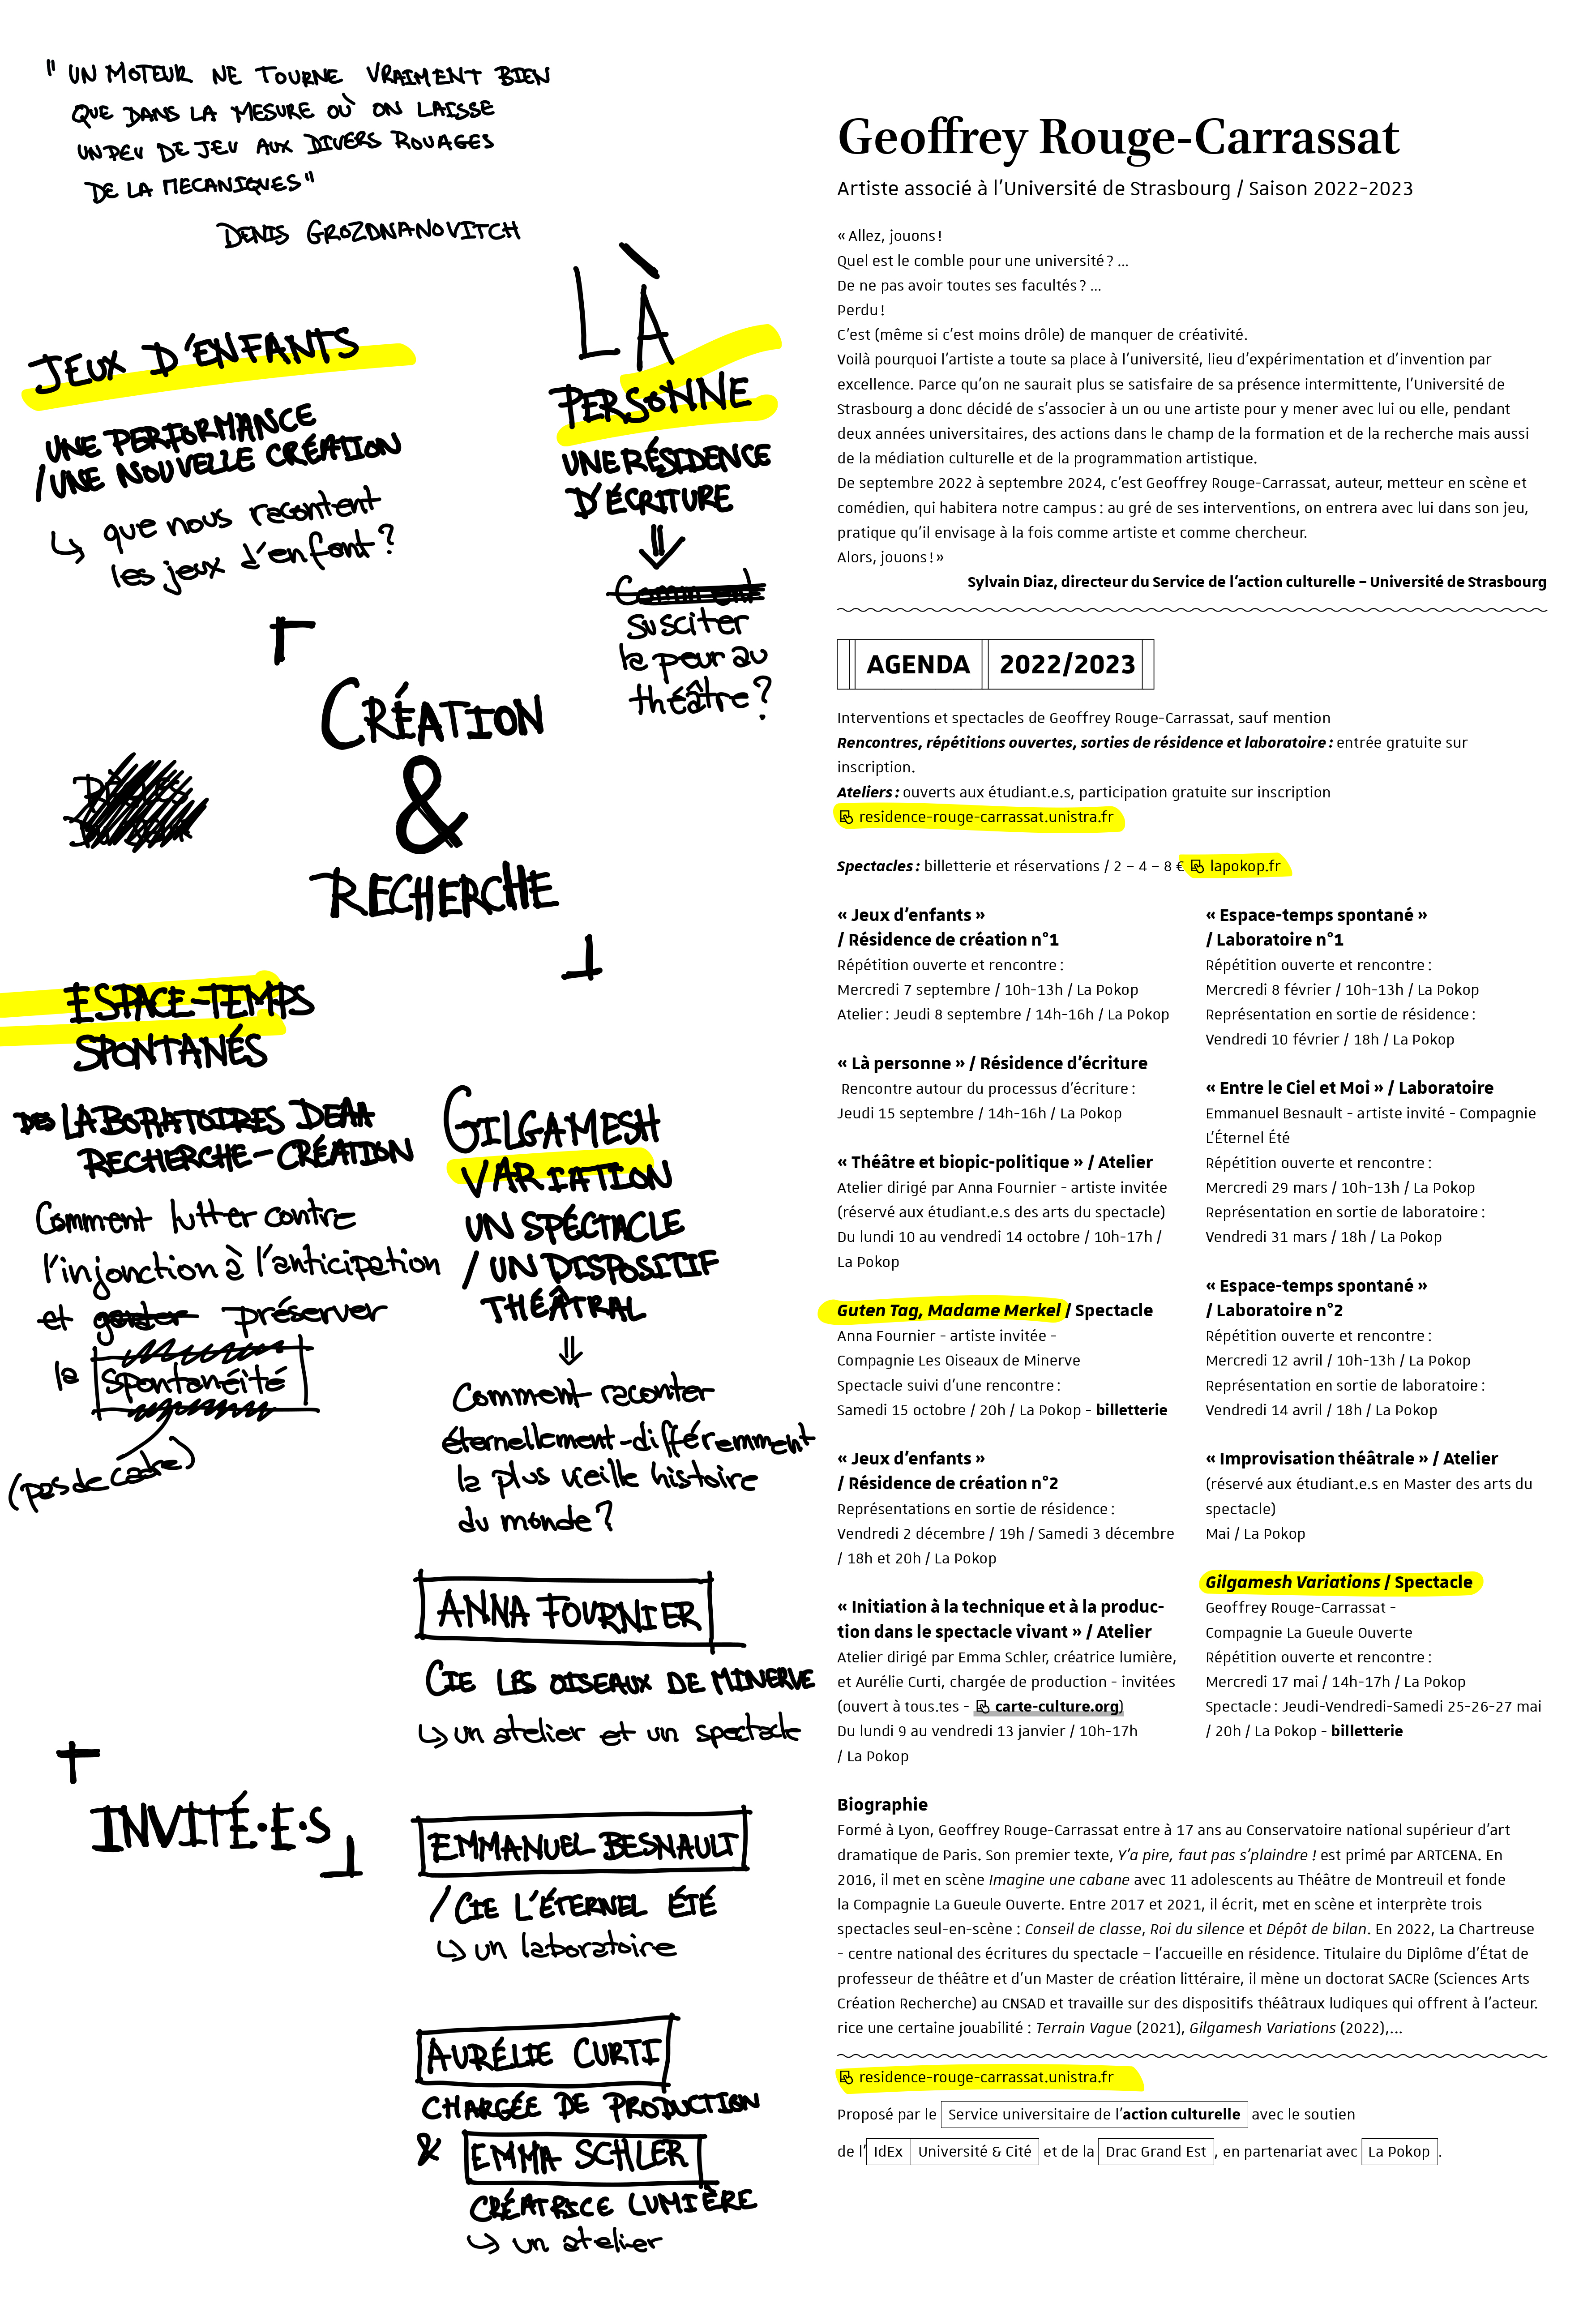 " UN MOTEUR NE TOURNE VRAIMENT BIEN
QUE DANS LA MESURE OÙ ON LAISSE
UN PEU DE JEU AUX DIVERS ROUAGES
DE LA MECANIQUES"
DENIS GROZDNANOVITCH
JEUX D'ENFANTS
UNE PERFORMANCE
/ UNE NOUVELLE CRÉATION
↳ que nous racontent
les jeux d'enfant?
LÀ
PERSONNE
UNE RÉSIDENCE
D'ÉCRITURE
⇓
Comment
susciter
la peur au
théâtre?
CRÉATION
&
RECHERCHE
ESPACE-TEMPS
SPONTANÉS
DES LABORATOIRES DE
RECHERCHE-CRÉATION
Comment lutter contre
l'injonction à l'anticipation
et garder préserver
la spontanéité
(pas de cadre)
GILGAMESH
VARIATION
UN SPÉCTACLE
/ UN DISPOSITIF
THÉÂTRAL
⇓
Comment raconter
éternellement-différemment
la plus vieille histoire
du monde?
ANNA FOURNIER
CIE LES OISEAUX DE MINERVE
↳ un atelier et un spectacle
+
INVITÉ·E·S
EMMANUEL BESNAULT
/ CIE L'ÉTERNEL ÉTÉ
↳ un laboratoire
AURÉLIE CURTI
CHARGÉE DE PRODUCTION
& EMMA SCHLER
CRÉATRICE LUMIÈRE
↳ un atelier
Geoffrey Rouge-Carrassat
Artiste associé à l'Université de Strasbourg / Saison 2022-2023
« Allez, jouons !
Quel est le comble pour une université ? ...
De ne pas avoir toutes ses facultés ? ...
Perdu !
C'est (même si c'est moins drôle) de manquer de créativité.
Voilà pourquoi l'artiste a toute sa place à l'université, lieu d'expérimentation et d'invention par
excellence. Parce qu'on ne saurait plus se satisfaire de sa présence intermittente, l'Université de
Strasbourg a donc décidé de s'associer à un ou une artiste pour y mener avec lui ou elle, pendant
deux années universitaires, des actions dans le champ de la formation et de la recherche mais aussi
de la médiation culturelle et de la programmation artistique.
De septembre 2022 à septembre 2024, c'est Geoffrey Rouge-Carrassat, auteur, metteur en scène et
comédien, qui habitera notre campus : au gré de ses interventions, on entrera avec lui dans son jeu,
pratique qu'il envisage à la fois comme artiste et comme chercheur.
Alors, jouons ! »
Sylvain Diaz, directeur du Service de l'action culturelle – Université de Strasbourg
AGENDA 2022/2023
Interventions et spectacles de Geoffrey Rouge-Carrassat, sauf mention
Rencontres, répétitions ouvertes, sorties de résidence et laboratoire : entrée gratuite sur
inscription.
Ateliers : ouverts aux étudiant.e.s, participation gratuite sur inscription
residence-rouge-carrassat.unistra.fr
Spectacles : billetterie et réservations / 2 – 4 – 8 € lapokop.fr
« Jeux d'enfants »
/ Résidence de création n°1
Répétition ouverte et rencontre :
Mercredi 7 septembre / 10h-13h / La Pokop
Atelier : Jeudi 8 septembre / 14h-16h / La Pokop
« Là personne » / Résidence d'écriture
Rencontre autour du processus d'écriture :
Jeudi 15 septembre / 14h-16h / La Pokop
« Théâtre et biopic-politique » / Atelier
Atelier dirigé par Anna Fournier - artiste invitée
(réservé aux étudiant.e.s des arts du spectacle)
Du lundi 10 au vendredi 14 octobre / 10h-17h /
La Pokop
Guten Tag, Madame Merkel / Spectacle
Anna Fournier - artiste invitée -
Compagnie Les Oiseaux de Minerve
Spectacle suivi d'une rencontre :
Samedi 15 octobre / 20h / La Pokop - billetterie
« Jeux d'enfants »
/ Résidence de création n°2
Représentations en sortie de résidence :
Vendredi 2 décembre / 19h / Samedi 3 décembre
/ 18h et 20h / La Pokop
« Initiation à la technique et à la produc-
tion dans le spectacle vivant » / Atelier
Atelier dirigé par Emma Schler, créatrice lumière,
et Aurélie Curti, chargée de production - invitées
(ouvert à tous.tes - carte-culture.org)
Du lundi 9 au vendredi 13 janvier / 10h-17h
/ La Pokop
« Espace-temps spontané »
/ Laboratoire n°1
Répétition ouverte et rencontre :
Mercredi 8 février / 10h-13h / La Pokop
Représentation en sortie de résidence :
Vendredi 10 février / 18h / La Pokop
« Entre le Ciel et Moi » / Laboratoire
Emmanuel Besnault - artiste invité - Compagnie
L'Éternel Été
Répétition ouverte et rencontre :
Mercredi 29 mars / 10h-13h / La Pokop
Représentation en sortie de laboratoire :
Vendredi 31 mars / 18h / La Pokop
« Espace-temps spontané »
/ Laboratoire n°2
Répétition ouverte et rencontre :
Mercredi 12 avril / 10h-13h / La Pokop
Représentation en sortie de laboratoire :
Vendredi 14 avril / 18h / La Pokop
« Improvisation théâtrale » / Atelier
(réservé aux étudiant.e.s en Master des arts du
spectacle)
Mai / La Pokop
Gilgamesh Variations / Spectacle
Geoffrey Rouge-Carrassat -
Compagnie La Gueule Ouverte
Répétition ouverte et rencontre :
Mercredi 17 mai / 14h-17h / La Pokop
Spectacle : Jeudi-Vendredi-Samedi 25-26-27 mai
/ 20h / La Pokop - billetterie
Biographie
Formé à Lyon, Geoffrey Rouge-Carrassat entre à 17 ans au Conservatoire national supérieur d'art
dramatique de Paris. Son premier texte, Y'a pire, faut pas s'plaindre ! est primé par ARTCENA. En
2016, il met en scène Imagine une cabane avec 11 adolescents au Théâtre de Montreuil et fonde
la Compagnie La Gueule Ouverte. Entre 2017 et 2021, il écrit, met en scène et interprète trois
spectacles seul-en-scène : Conseil de classe, Roi du silence et Dépôt de bilan. En 2022, La Chartreuse
- centre national des écritures du spectacle – l'accueille en résidence. Titulaire du Diplôme d'État de
professeur de théâtre et d'un Master de création littéraire, il mène un doctorat SACRe (Sciences Arts
Création Recherche) au CNSAD et travaille sur des dispositifs théâtraux ludiques qui offrent à l'acteur.
rice une certaine jouabilité : Terrain Vague (2021), Gilgamesh Variations (2022),...
residence-rouge-carrassat.unistra.fr
Proposé par le Service universitaire de l'action culturelle avec le soutien
de l' IdEx Université & Cité et de la Drac Grand Est, en partenariat avec La Pokop.